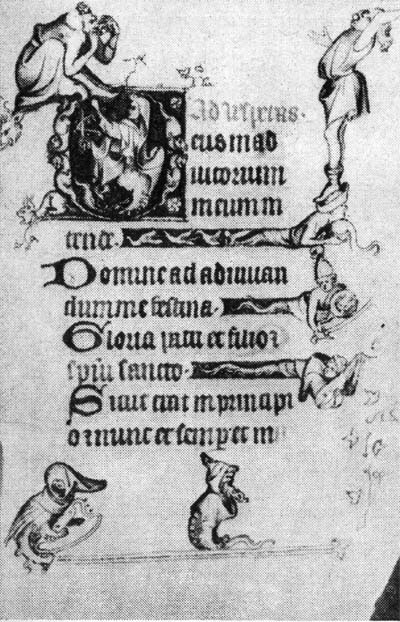 Ad vesperas.
Deus in ad
iutorium
meum in
tende.
Domine ad adiuuan
dum me festina.
Gloria patri et filio
spũi sancto.
Sicut erat in principi
o et nunc et semper et in